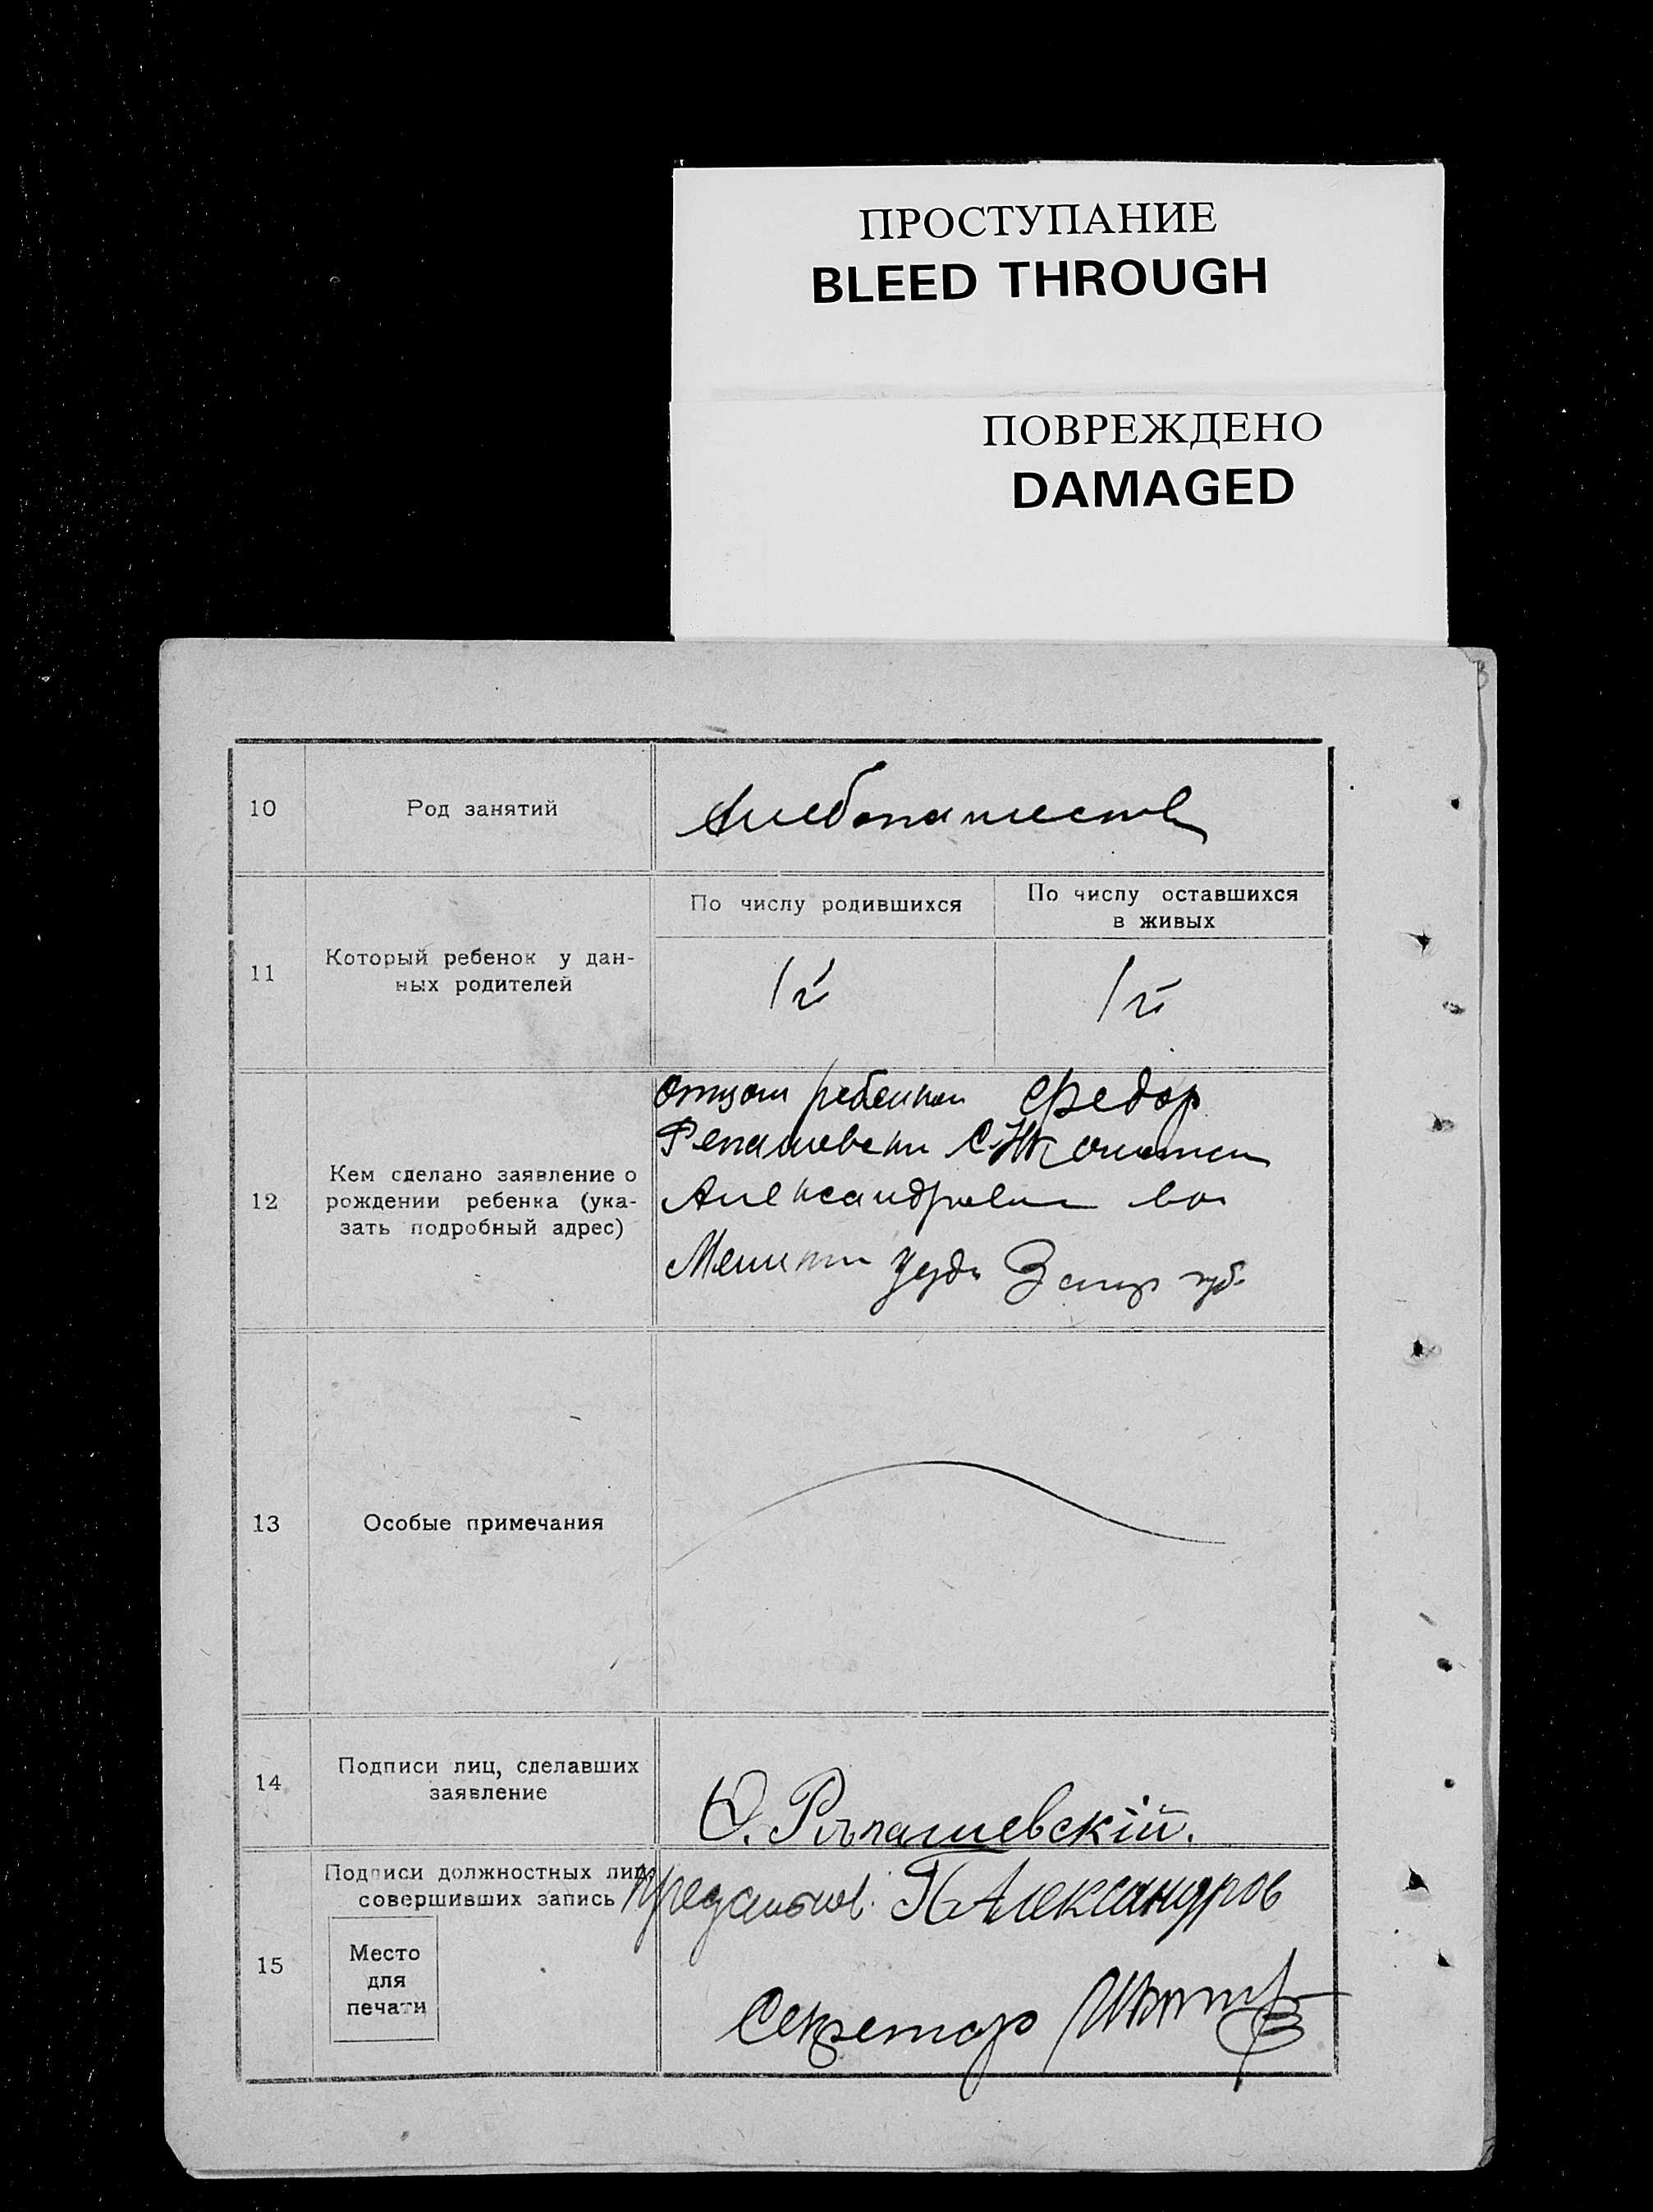 ПРОСТУПАНИЕ
BLEED THROUGH
ПОВРЕЖДЕНО
DAMAGED
10
Род занятий
Хлебопашеств
11
Который ребенок у дан-
ных родителей
По числу родившихся
По числу оставшихся
в живых
1й
1й
12
Кем сделано заявление о
рождении ребенка (ука-
зать подробный адрес)
Отцом ребенка Федор
Репашевски С.
Александровск во
уезда губ.
13
Особые примечания
14
Подписи лиц, сделавших
заявление
Ѳ. Рѣпашевскій.
15
Подписи должностных лиц,
совершивших запись
Место
для
печати
Александров
Секретар